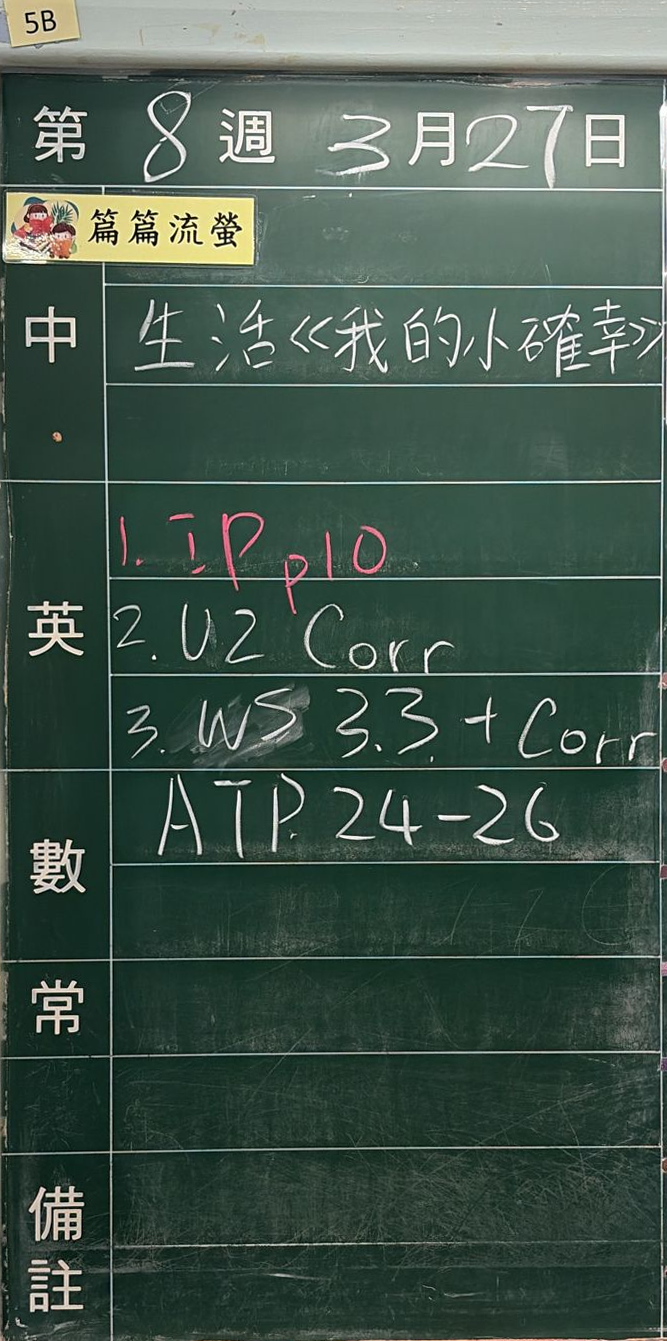 5B
第 8 週 3月27日
篇篇流螢
中
生活《我的小確幸》
英
1. IP p10
2. U2 Corr
3. WS 3.3 + Corr
數
ATP. 24-26
常
備註